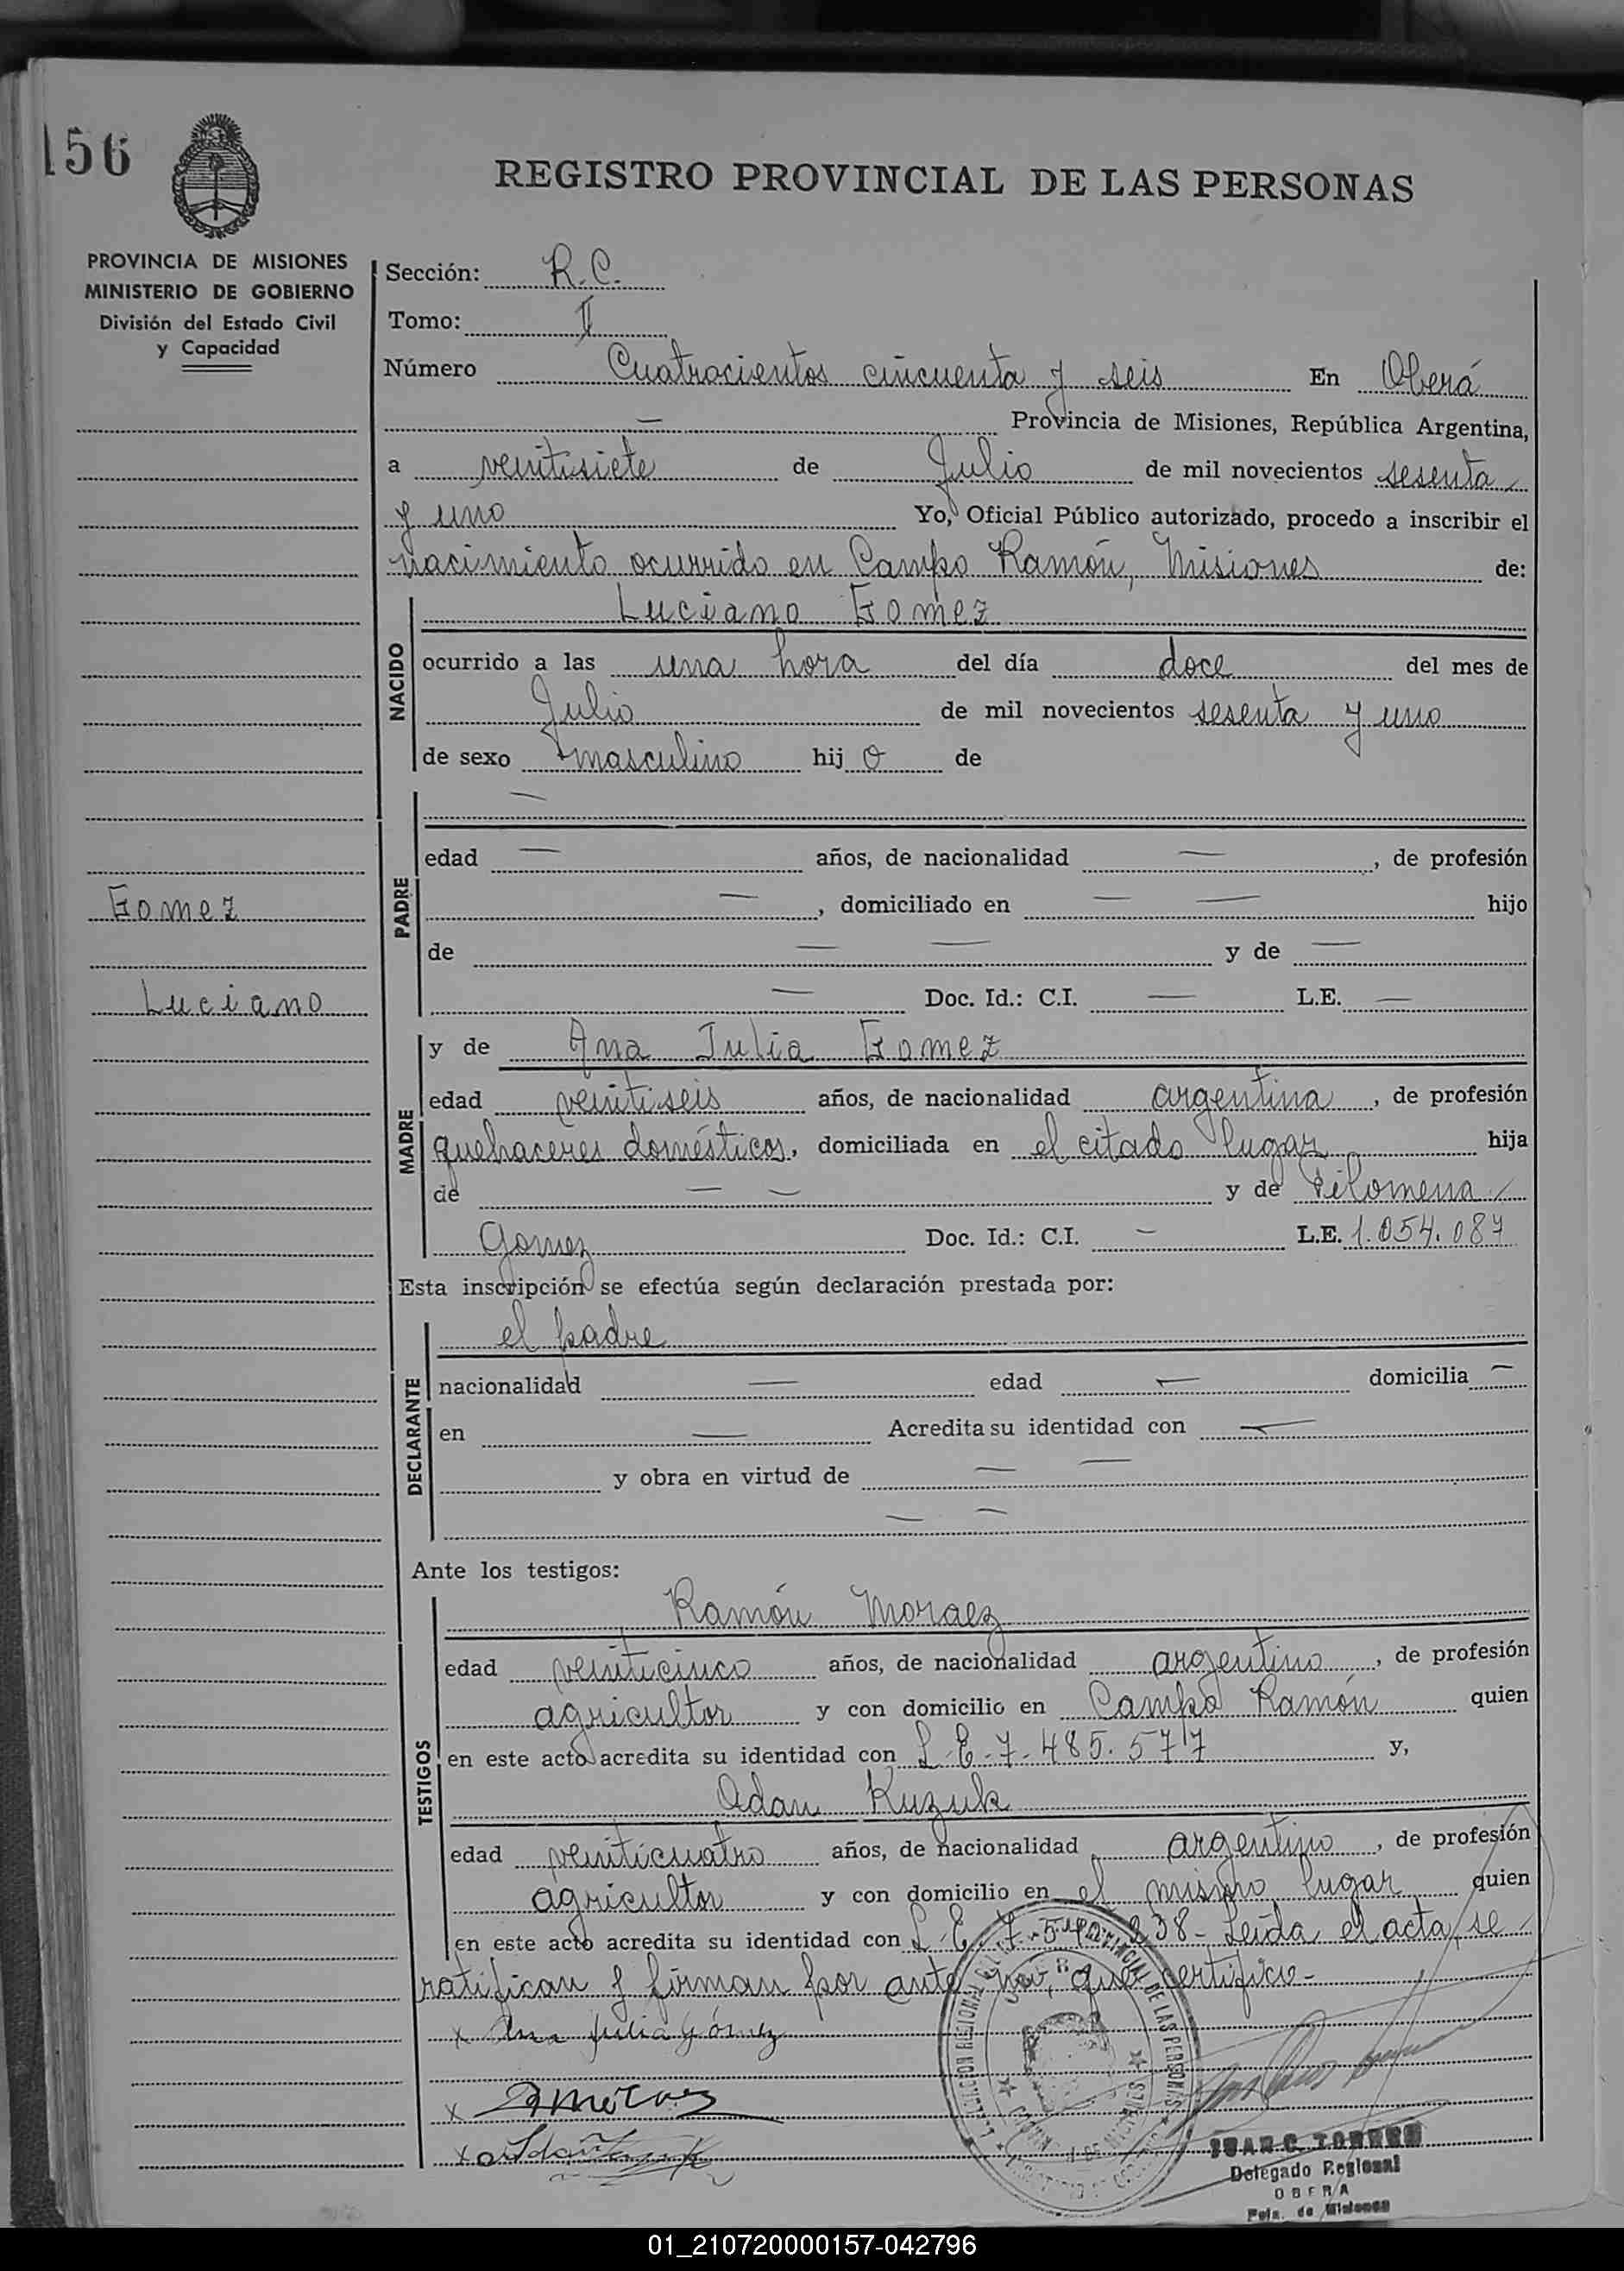 156
REGISTRO PROVINCIAL DE LAS PERSONAS
PROVINCIA DE MISIONES
MINISTERIO DE GOBIERNO
División del Estado Civil
y Capacidad
Sección: R.C.
Tomo: II
Número Cuatrocientos cincuenta y seis En Oberá
— Provincia de Misiones, República Argentina,
a veintisiete de Julio de mil novecientos sesenta
y uno Yo, Oficial Público autorizado, procedo a inscribir el
nacimiento ocurrido en Campo Ramón, Misiones de:
NACIDO
Luciano Gomez
ocurrido a las una hora del día doce del mes de
Julio de mil novecientos sesenta y uno
de sexo masculino hij o de
PADRE
—
edad — años, de nacionalidad — , de profesión
— , domiciliado en — — hijo
de — — y de —
— Doc. Id.: C.I. — L.E. —
Gomez
Luciano
MADRE
y de Ana Julia Gomez
edad veintiseis años, de nacionalidad argentina , de profesión
quehaceres domésticos, domiciliada en el citado lugar hija
de — — y de Filomena
Gomez Doc. Id.: C.I. — L.E. 1.054.087
Esta inscripción se efectúa según declaración prestada por:
DECLARANTE
el padre
nacionalidad — edad — domicilia —
en — Acredita su identidad con —
y obra en virtud de — —
— —
Ante los testigos:
TESTIGOS
Ramón Moraez
edad veinticinco años, de nacionalidad argentino , de profesión
agricultor y con domicilio en Campo Ramón quien
en este acto acredita su identidad con L.E.-7.485.577 y,
Adan Kuzuk
edad veinticuatro años, de nacionalidad argentino , de profesión
agricultor y con domicilio en el mismo lugar quien
en este acto acredita su identidad con L.E. 7.5 238- Leída el acta, se
ratifican y firman por ante mi, que certifico-
x Ana Julia Gómez
x
x
DELEGACION REGIONAL PROVINCIAL DE LAS PERSONAS
JUAN C. TORRES
Delegado Regional
OBERA
Pcia. de Misiones
01_210720000157-042796